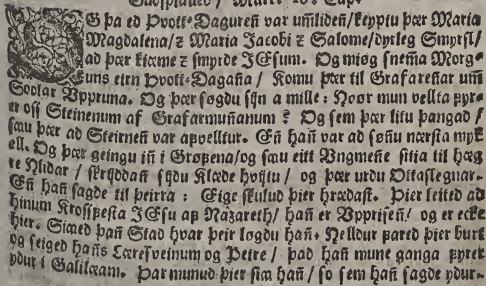 Gudspiallid / Marc. 16. Cap.
OG þa ed Þvott-Dagureñ var umlideñ/ keyptu þær Maria
Magdalena/ ꝛ Maria Jacobi ꝛ Salome/ dyrleg Smyrsl/
ad þær kiæme ꝛ smyrde JEsum. Og miog sneṁa Morg-
uns eirn Þvott-Dagaña / Komu þær til Grafareñar um̃
Soolar Vppruna. Og þær søgdu sijn a mille: Hvør mun vellta fyr-
er oss Steinenum af Grafarmuñanum ? Og sem þær litu þangad /
sæu þær ad Steirneñ var afvelltur. Eñ hañ var ad søñu nærsta myk-
ell. Og þær geingu iñ i Grøfena/ og sæu eitt Vngmeñe sitia til hæg-
re Hlidar / skrijddañ sijdu Klæde hvijtu / og þær urdu Ottaslegnar.
Eñ hañ sagde til þeirra : Eige skulud þier hrædast. Þier leited ad
hinum Krossfesta JEsu af Nazareth/ hañ er Vppriseñ/ og er ecke
hier. Siaed þañ Stad hvar þeir løgdu hañ. Helldur fared þier burt
og seiged hañs Læresveinum og Petre / þad hañ mune ganga fyrer
ydur i Galilæam. Þar munud þier sia hañ/ so sem hañ sagde ydur.